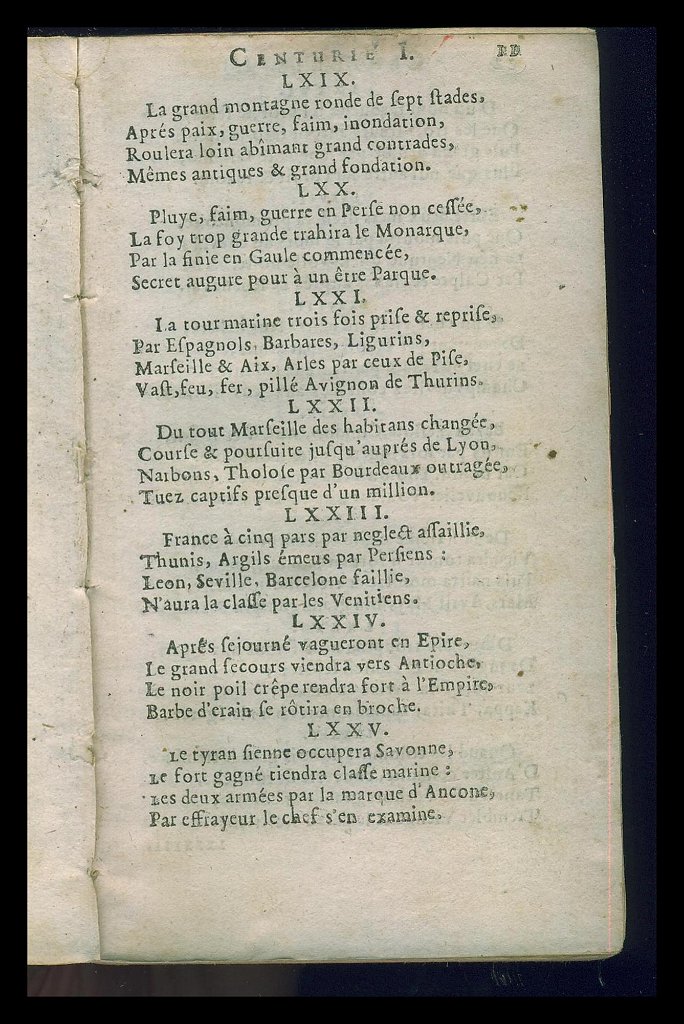 CENTURIE I.
LXIX.
La grand montagne ronde de ſept ſtades,
Aprés paix, guerre, faim, inondation,
Roulera loin abîmant grand contrades,
Mêmes antiques & grand fondation.
LXX.
Pluye, faim, guerre en Perſe non ceſſée,
La foy trop grande trahira le Monarque,
Par la finie en Gaule commencée,
Secret augure pour à un être Parque.
LXXI.
La tour marine trois fois priſe & repriſe,
Par Eſpagnols, Barbares, Ligurins,
Marſeille & Aix, Arles par ceux de Piſe,
Vaſt, feu, fer, pillé Avignon de Thurins.
LXXII.
Du tout Marſeille des habitans changée,
Courſe & pourſuite juſqu'auprés de Lyon,
Narbons, Tholoſe par Bourdeaux outragée,
Tuez captifs preſque d'un million.
LXXIII.
France à cinq pars par neglect aſſaillie,
Thunis, Argils émeus par Perſiens :
Leon, Seville, Barcelone faillie,
N'aura la claſſe par les Venitiens.
LXXIV.
Aprés ſejourné vagueront en Epire,
Le grand ſecours viendra vers Antioche,
Le noir poil crêpe rendra fort à l'Empire,
Barbe d'erain ſe rôtira en broche.
LXXV.
Le tyran ſienne occupera Savonne,
Le fort gagné tiendra claſſe marine :
Les deux armées par la marque d'Ancone,
Par effrayeur le chef s'en examine.